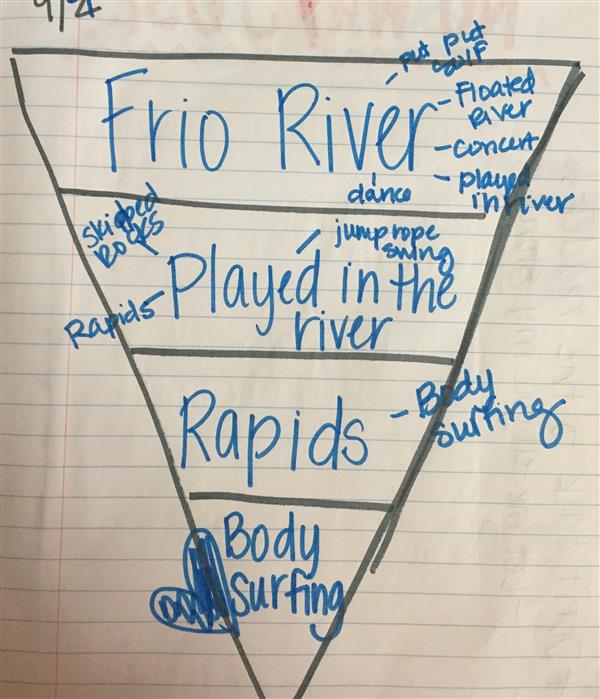 9/4
put put
golf
Frio River
- Floated
River
- concert
- played
in river
dance
skipped
Rocks
jump rope
swing
Played in the
river
Rapids
Rapids
- Body
surfing
Body
surfing